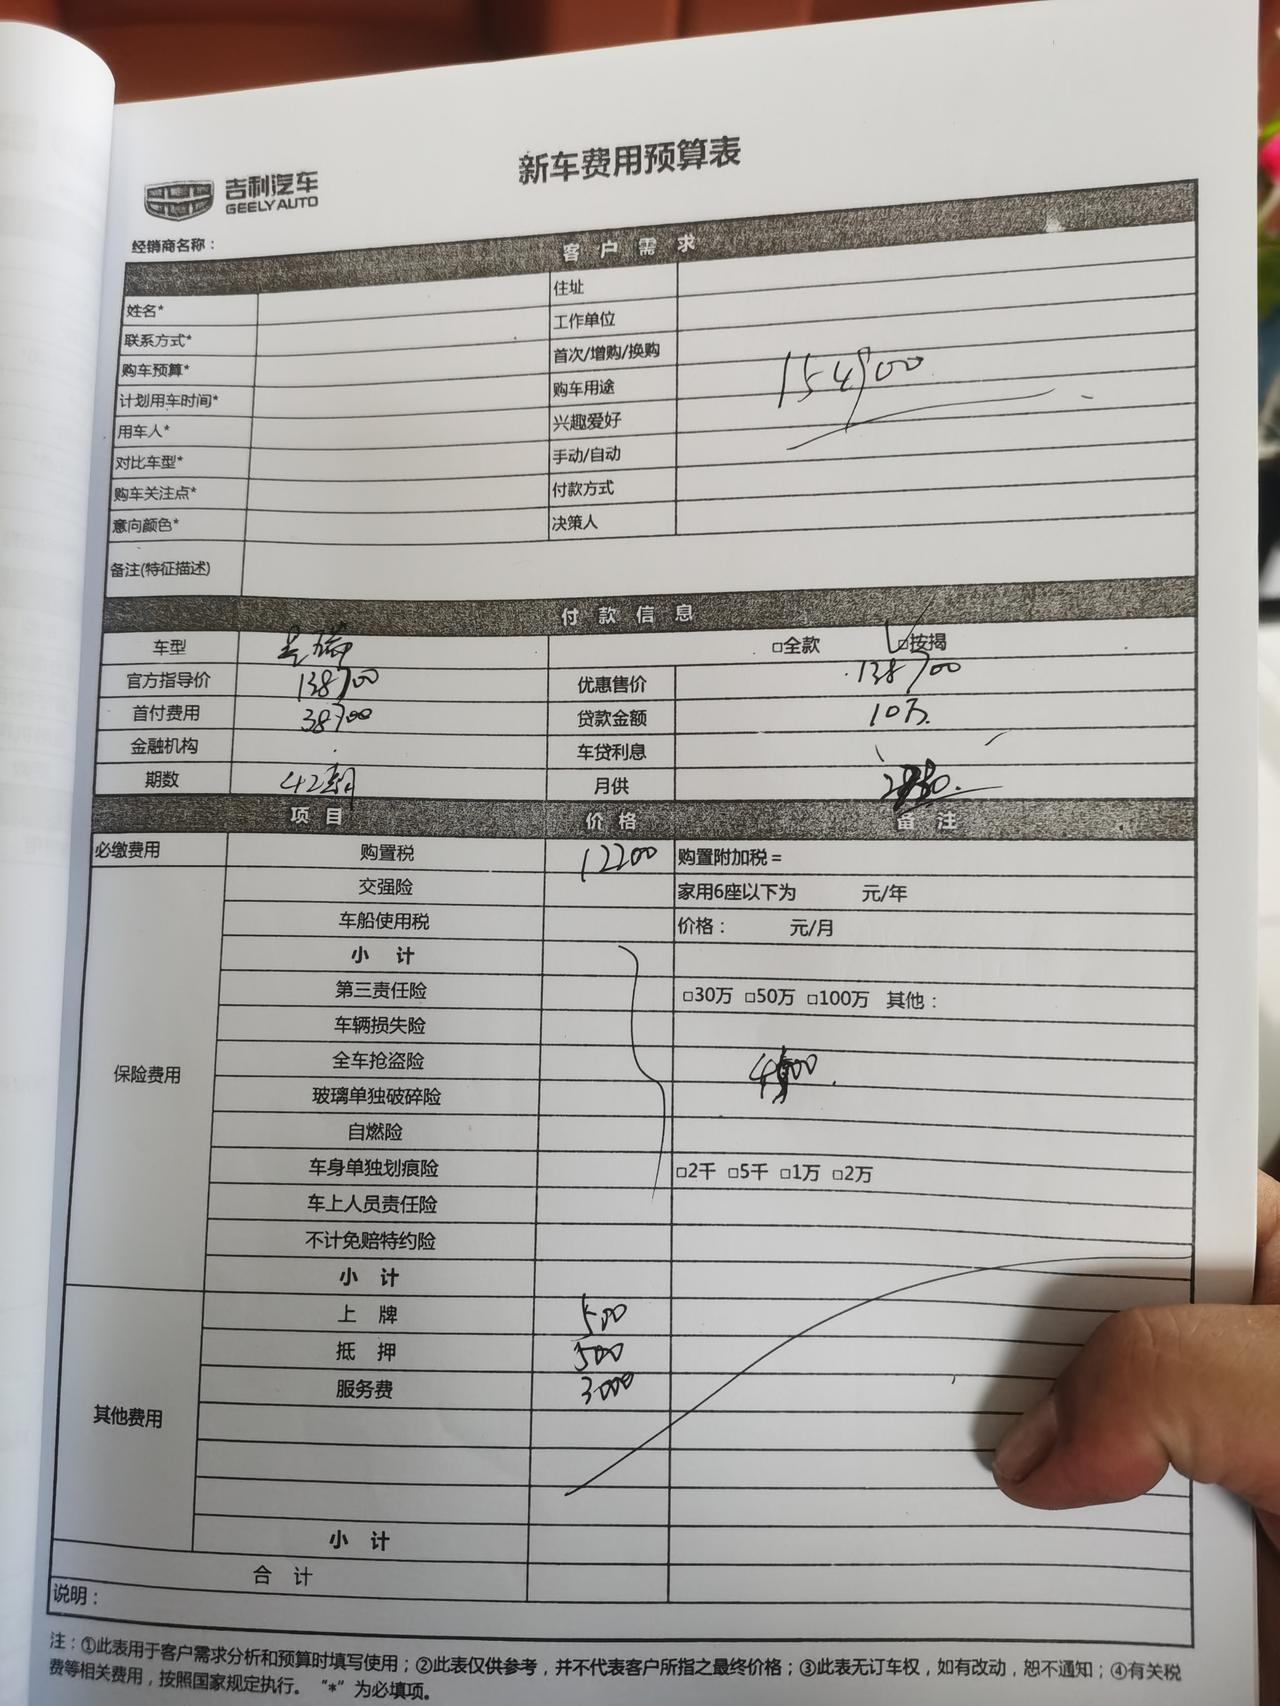 新车费用预算表
吉利汽车
GEELY AUTO
经销商名称：
客户需求
姓名*
住址
联系方式*
工作单位
购车预算*
首次/增购/换购
计划用车时间*
购车用途
154900
用车人*
兴趣爱好
对比车型*
手动/自动
购车关注点*
付款方式
意向颜色*
决策人
备注(特征描述)
付款信息
车型 星瑞 □全款 □按揭
官方指导价 138700 优惠售价 138700
首付费用 38700 贷款金额 10万
金融机构 车贷利息
期数 42期 月供
项目 价格 备注
必缴费用 购置税 12200 购置附加税=
保险费用
交强险 家用6座以下为 元/年
车船使用税 价格： 元/月
小计
第三责任险 □30万 □50万 □100万 其他：
车辆损失险
全车抢盗险
玻璃单独破碎险
自燃险
车身单独划痕险 □2千 □5千 □1万 □2万
车上人员责任险
不计免赔特约险
小计
其他费用
上牌 500
抵押 500
服务费 3000
小计
合计
说明：
注：①此表用于客户需求分析和预算时填写使用；②此表仅供参考，并不代表客户所指之最终价格；③此表无订车权，如有改动，恕不通知；④有关税
费等相关费用，按照国家规定执行。“*”为必填项。